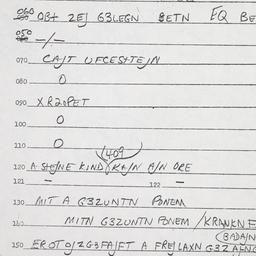 060 OB+ ZEJ G3LEGN BETN EQ BE
050 -/-
070 CAJT UFCESTEJN
080 O
090 XR20PET
100 O
110 O
(409)
120 A STEJNE KIND (K+/N A/N ORE
121 - 122 -
130 MIT A G32UNTN PONEM
140 MITN G32UNTN PONEM /KRANKNE
(BADAJN
150 EROTOJ2G3FAJFT A FREJLAXN G32AJNG